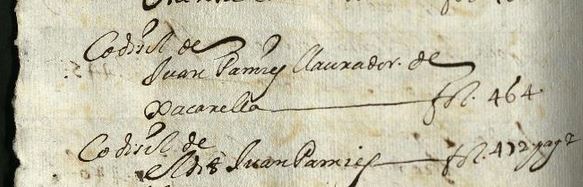 Codisil de
Juan Pamies llaurador de
Vacarella fol. 464
Codisil de
Juan Pamies fol. 472